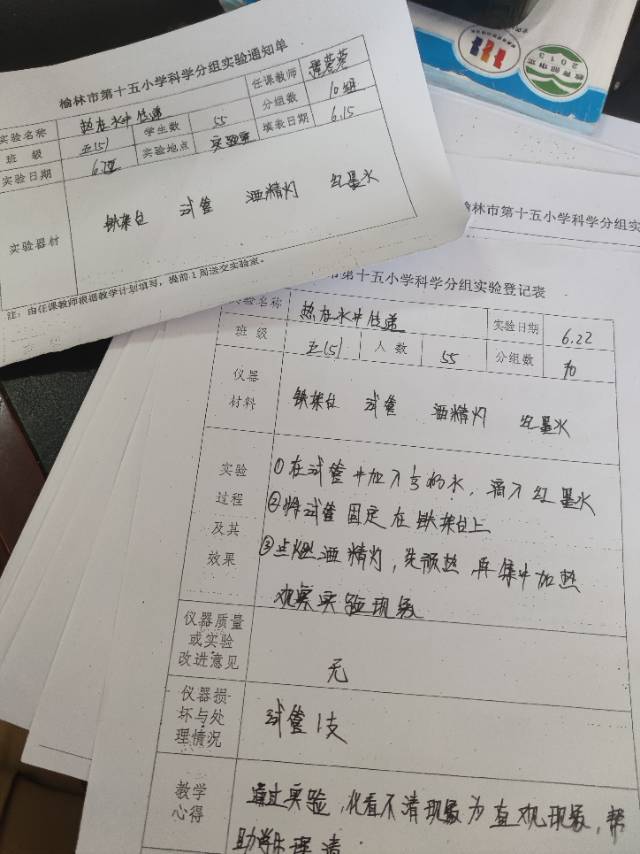 榆林市第十五小学科学分组实验通知单
实验名称 热在水中传递 任课教师
班 级 五(5) 学生数 55 分组数 10组
实验日期 实验地点 实验室 填表日期 6.15
实验器材 铁架台 试管 酒精灯 红墨水
注:由任课教师根据教学计划填写,提前1周送交实验室。
榆林市第十五小学科学分组实
市第十五小学科学分组实验登记表
实验名称 热在水中传递 实验日期 6.22
班 级 五(5) 人 数 55 分组数 10
仪器
材料
铁架台 试管 酒精灯 红墨水
实验
过程
及其
效果
①在试管中加入⅓的水,滴入红墨水
②将试管固定在铁架台上
③点燃酒精灯,先预热再集中加热
观察实验现象
仪器质量
或实验
改进意见
无
仪器损
坏与处
理情况
试管1支
教学
心得
通过实验,化看不清现象为直观现象,帮
助学生理清
2013